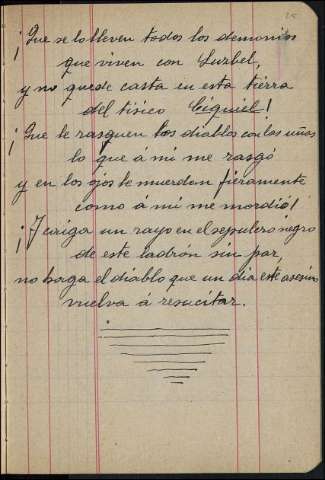 25
¡Que se lo lleven todos los demonios
que viven con Luzbel,
y no quede casta en esta tierra
del tísico Ciquiel!
¡Que le rasguen los diablos con las uñas
lo que á mi me rasgó
y en los ojos le muerdan fieramente
como á mi me mordió!
¡Y caiga un rayo en el sepulcro negro
de este ladrón sin par,
no haga el diablo que un dia este asesin
vuelva á resucitar.